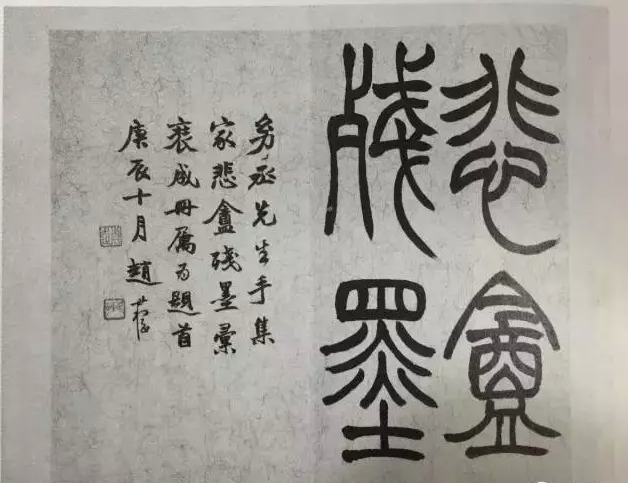 悲盦
殘墨
丞先生手集
家悲盦殘墨彙
裒成冊屬为題首
庚辰十月趙